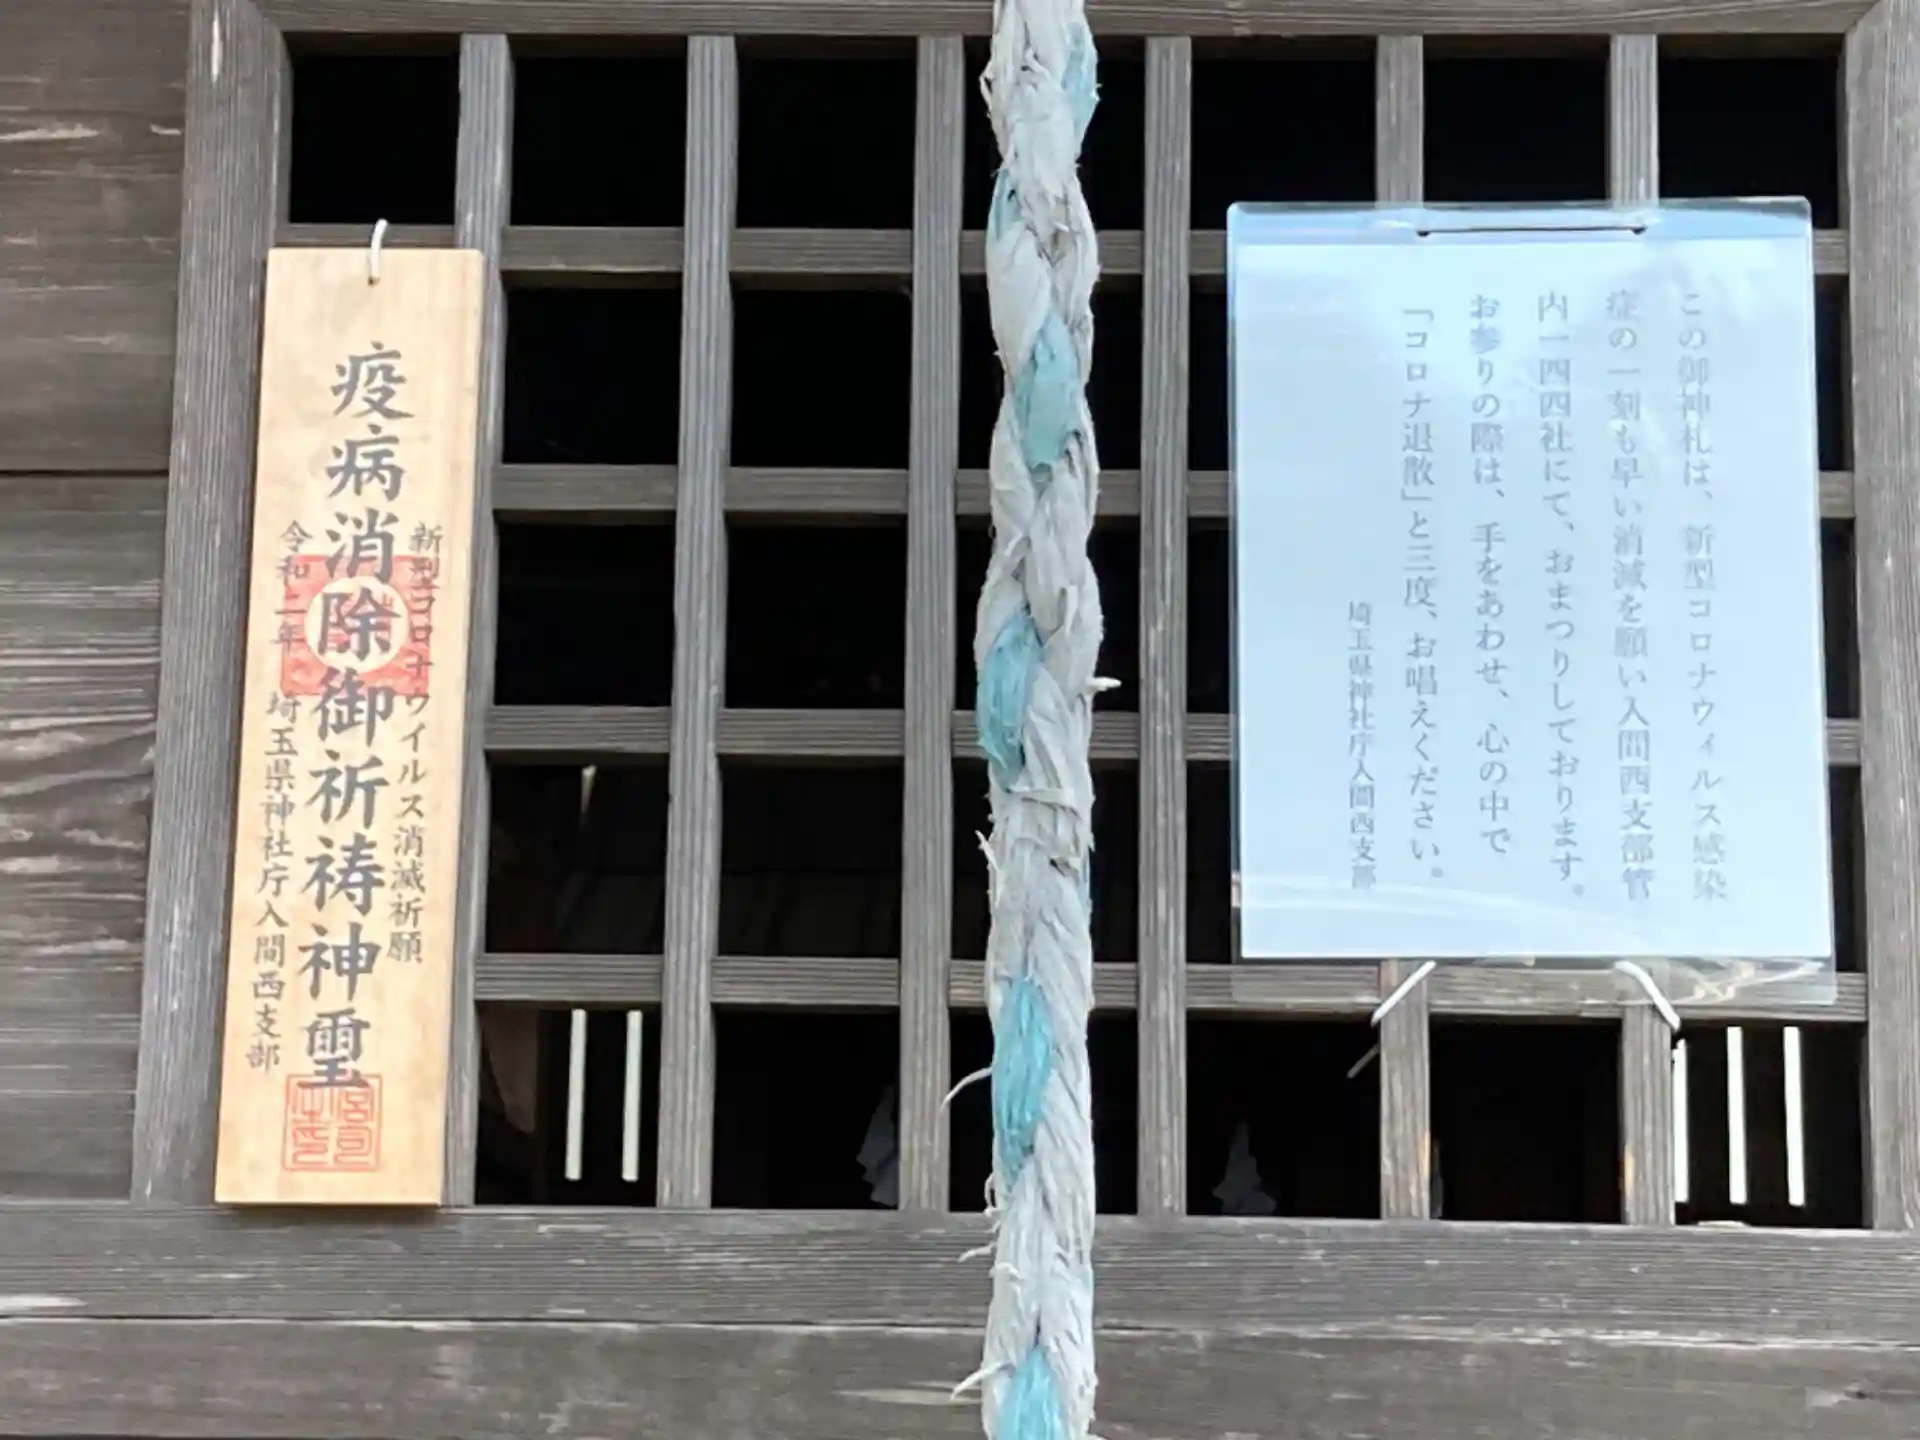 疫病消除御祈祷神璽
新型コロナウイルス消滅祈願
令和二年 埼玉県神社庁入間西支部
この御神札は、新型コロナウィルス感染
症の一刻も早い消滅を願い入間西支部管
内一四四社にて、おまつりしております。
お参りの際は、手をあわせ、心の中で
「コロナ退散」と三度、お唱えください。
埼玉県神社庁入間西支部